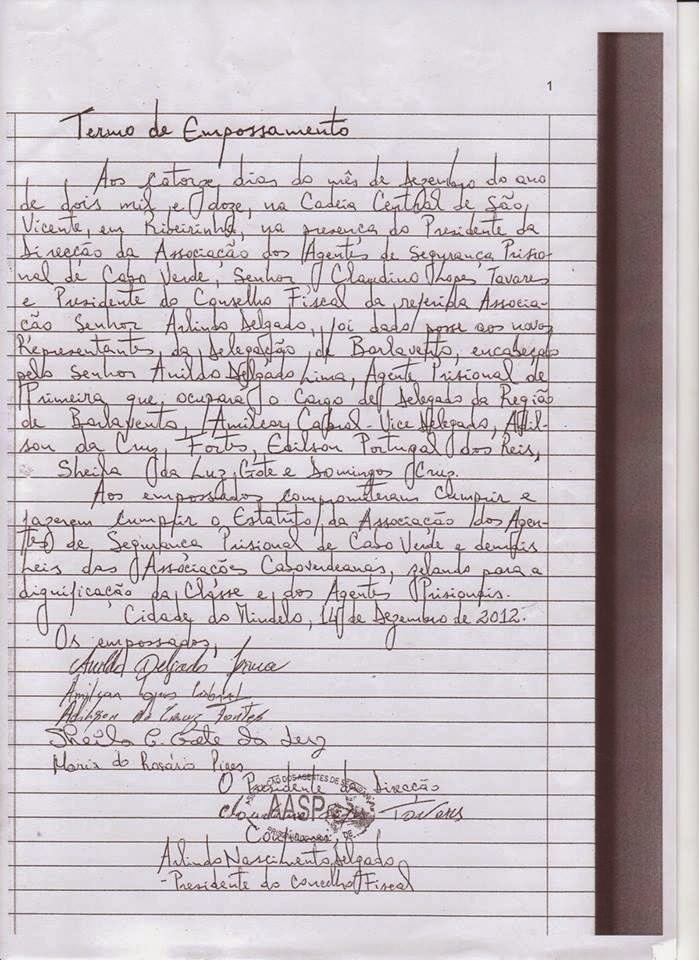 1
Termo de Empossamento
Aos catorze dias do mês de Dezembro do ano
de dois mil e doze, na Cadeia Central de São
Vicente, em Ribeirinha, na presença do Presidente da
Direcção da Associação dos Agentes de Segurança Prisio-
nal de Cabo Verde, Senhor Claudino Lopes Tavares
e Presidente do Conselho Fiscal da referida Associa-
ção Senhor Arlindo Delgado, foi dado posse aos novos
Representantes da Delegação de Barlavento, encabeçado
pelo Senhor Anildo Delgado Lima, Agente Prisional de
Primeira que ocupará o cargo de Delegado da Região
de Barlavento, Amilcar Cabral - Vice Delegado, Adil-
son da Cruz Fortes, Edilson Portugal dos Reis,
Sheila da Luz Gote e Domingos Cruz.
Aos empossados comprometeram cumprir e
fazerem cumprir o Estatuto da Associação dos Agen-
tes de Segurança Prisional de Cabo Verde e demais
leis das Associações Caboverdeanas, zelando para a
dignificação da Classe e dos Agentes Prisionais.
Cidade do Mindelo, 14 de Dezembro de 2012.
Os empossados,
Anildo Delgado Lima
Amilcar Lopes Cabral
Adilson da Cruz Fortes
Sheila G. Gote da Luz
Maria do Rosário Pires
O Presidente da Direcção
AASP
Claudino Tavares
Arlindo Nascimento Delgado
-Presidente do Concelho Fiscal